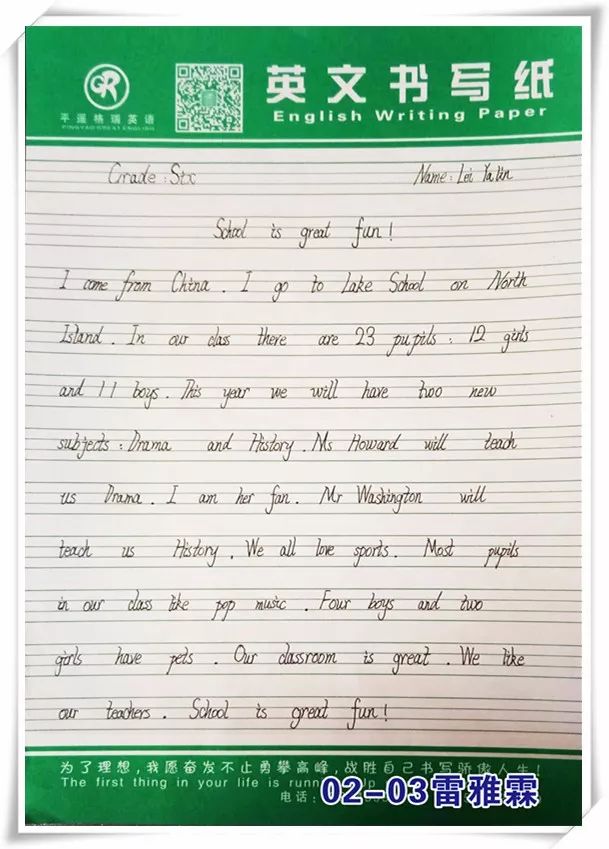 GR
平遥格瑞英语
PINGYAO GREAT ENGLISH
英文书写纸
English Writing Paper
Grade: Six
Name: Lei Yalin
School is great fun!
I come from China. I go to Lake School on North
Island. In our class there are 23 pupils: 12 girls
and 11 boys. This year we will have two new
subjects: Drama and History. Ms Howard will teach
us Drama. I am her fan. Mr Washington will
teach us History. We all love sports. Most pupils
in our class like pop music. Four boys and two
girls have pets. Our classroom is great. We like
our teachers. School is great fun!
为了理想,我愿奋发不止勇攀高峰,战胜自己书写骄傲人生!
The first thing in your life is
电话:
02-03雷雅霖